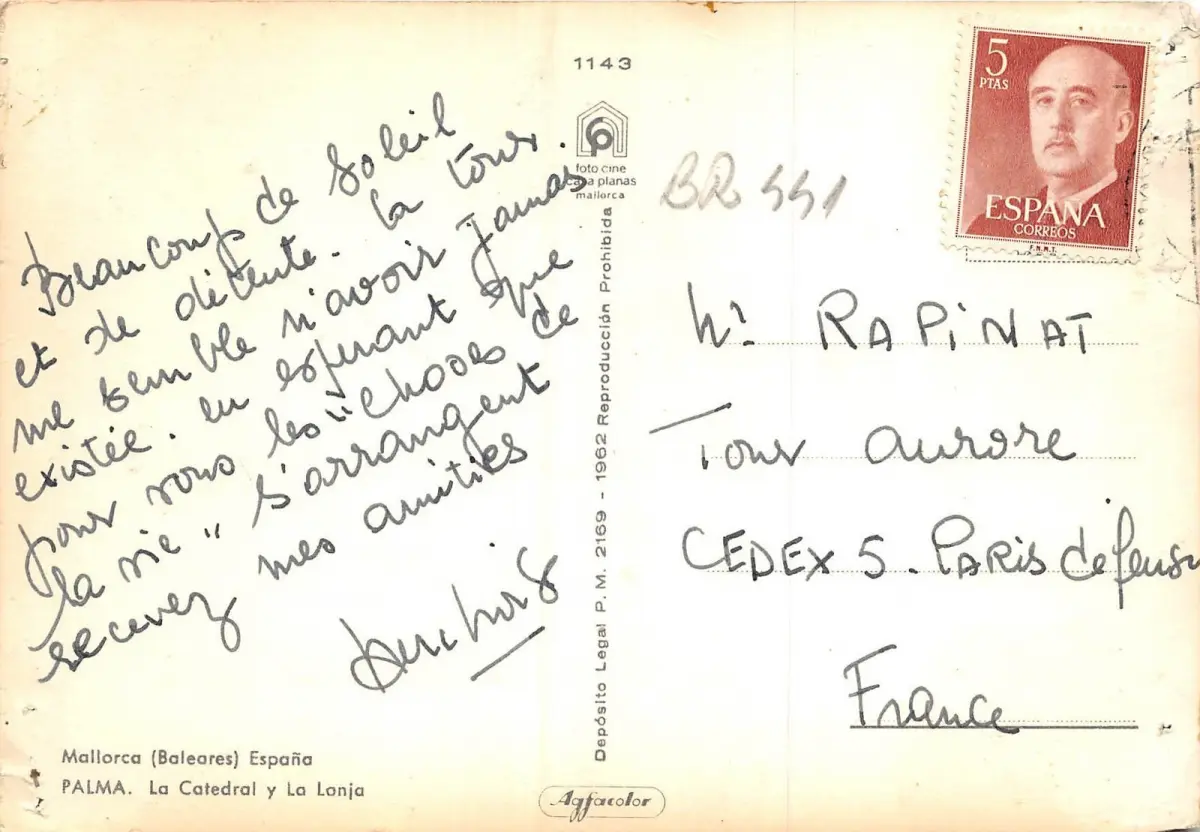 Beaucoup de Soleil
et de détente. la tour
me semble n'avoir jamais
existée. en espérant que
pour vous les "choses de
la vie" s'arrangent
recevez mes amitiés
Mallorca (Baleares) España
PALMA. La Catedral y La Lonja
1143
foto cine
casa planas
mallorca
Depósito Legal P. M. 2169 - 1962 Reproducción Prohibida
Agfacolor
BR 441
5
PTAS
ESPAÑA
CORREOS
F.N.M.T.
Mr RAPINAT
Tour aurore
CEDEX 5. PARIS défense
France